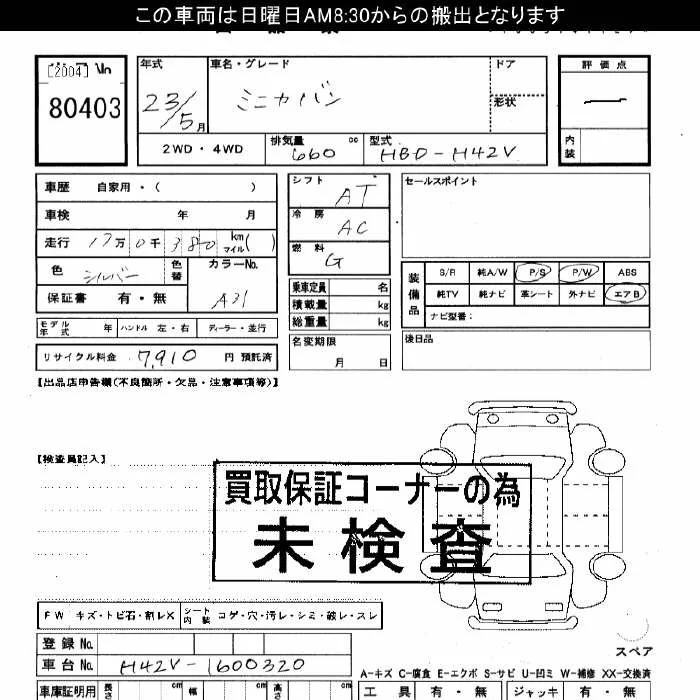 この車両は日曜日AM8:30からの搬出となります
[2004] No
80403
年式 23/5月
車名・グレード ミニカバン
ドア
形状
評価点 ー
内装
2WD・4WD
排気量 660 cc
型式 HBD-H42V
車歴 自家用・( )
車検 年 月
走行 17万0千380 km マイル( )
色 シルバー 色替
カラーNo. A31
保証書 有・無
モデル年式 年 ハンドル 左・右 ディーラー・並行
リサイクル料金 7,910 円 預託済
シフト AT
冷房 AC
燃料 G
乗車定員 名
積載量 kg
総重量 kg
名変期限 月 日
セールスポイント
装備品
S/R 純A/W P/S P/W ABS
純TV 純ナビ 革シート 外ナビ エアB
ナビ型番:
後日品
【出品店申告欄(不良箇所・欠品・注意事項等)】
【検査員記入】
買取保証コーナーの為
未検査
FW キズ・トビ石・割レX
シート内装 コゲ・穴・汚レ・シミ・破レ・スレ
登録No.
車台No. H42V-1600320
スペア
A-キズ C-腐食 E-エクボ S-サビ U-凹ミ W-補修 XX-交換済
車庫証明用 長さ cm 幅 cm 高さ cm
工具 有・無 ジャッキ 有・無